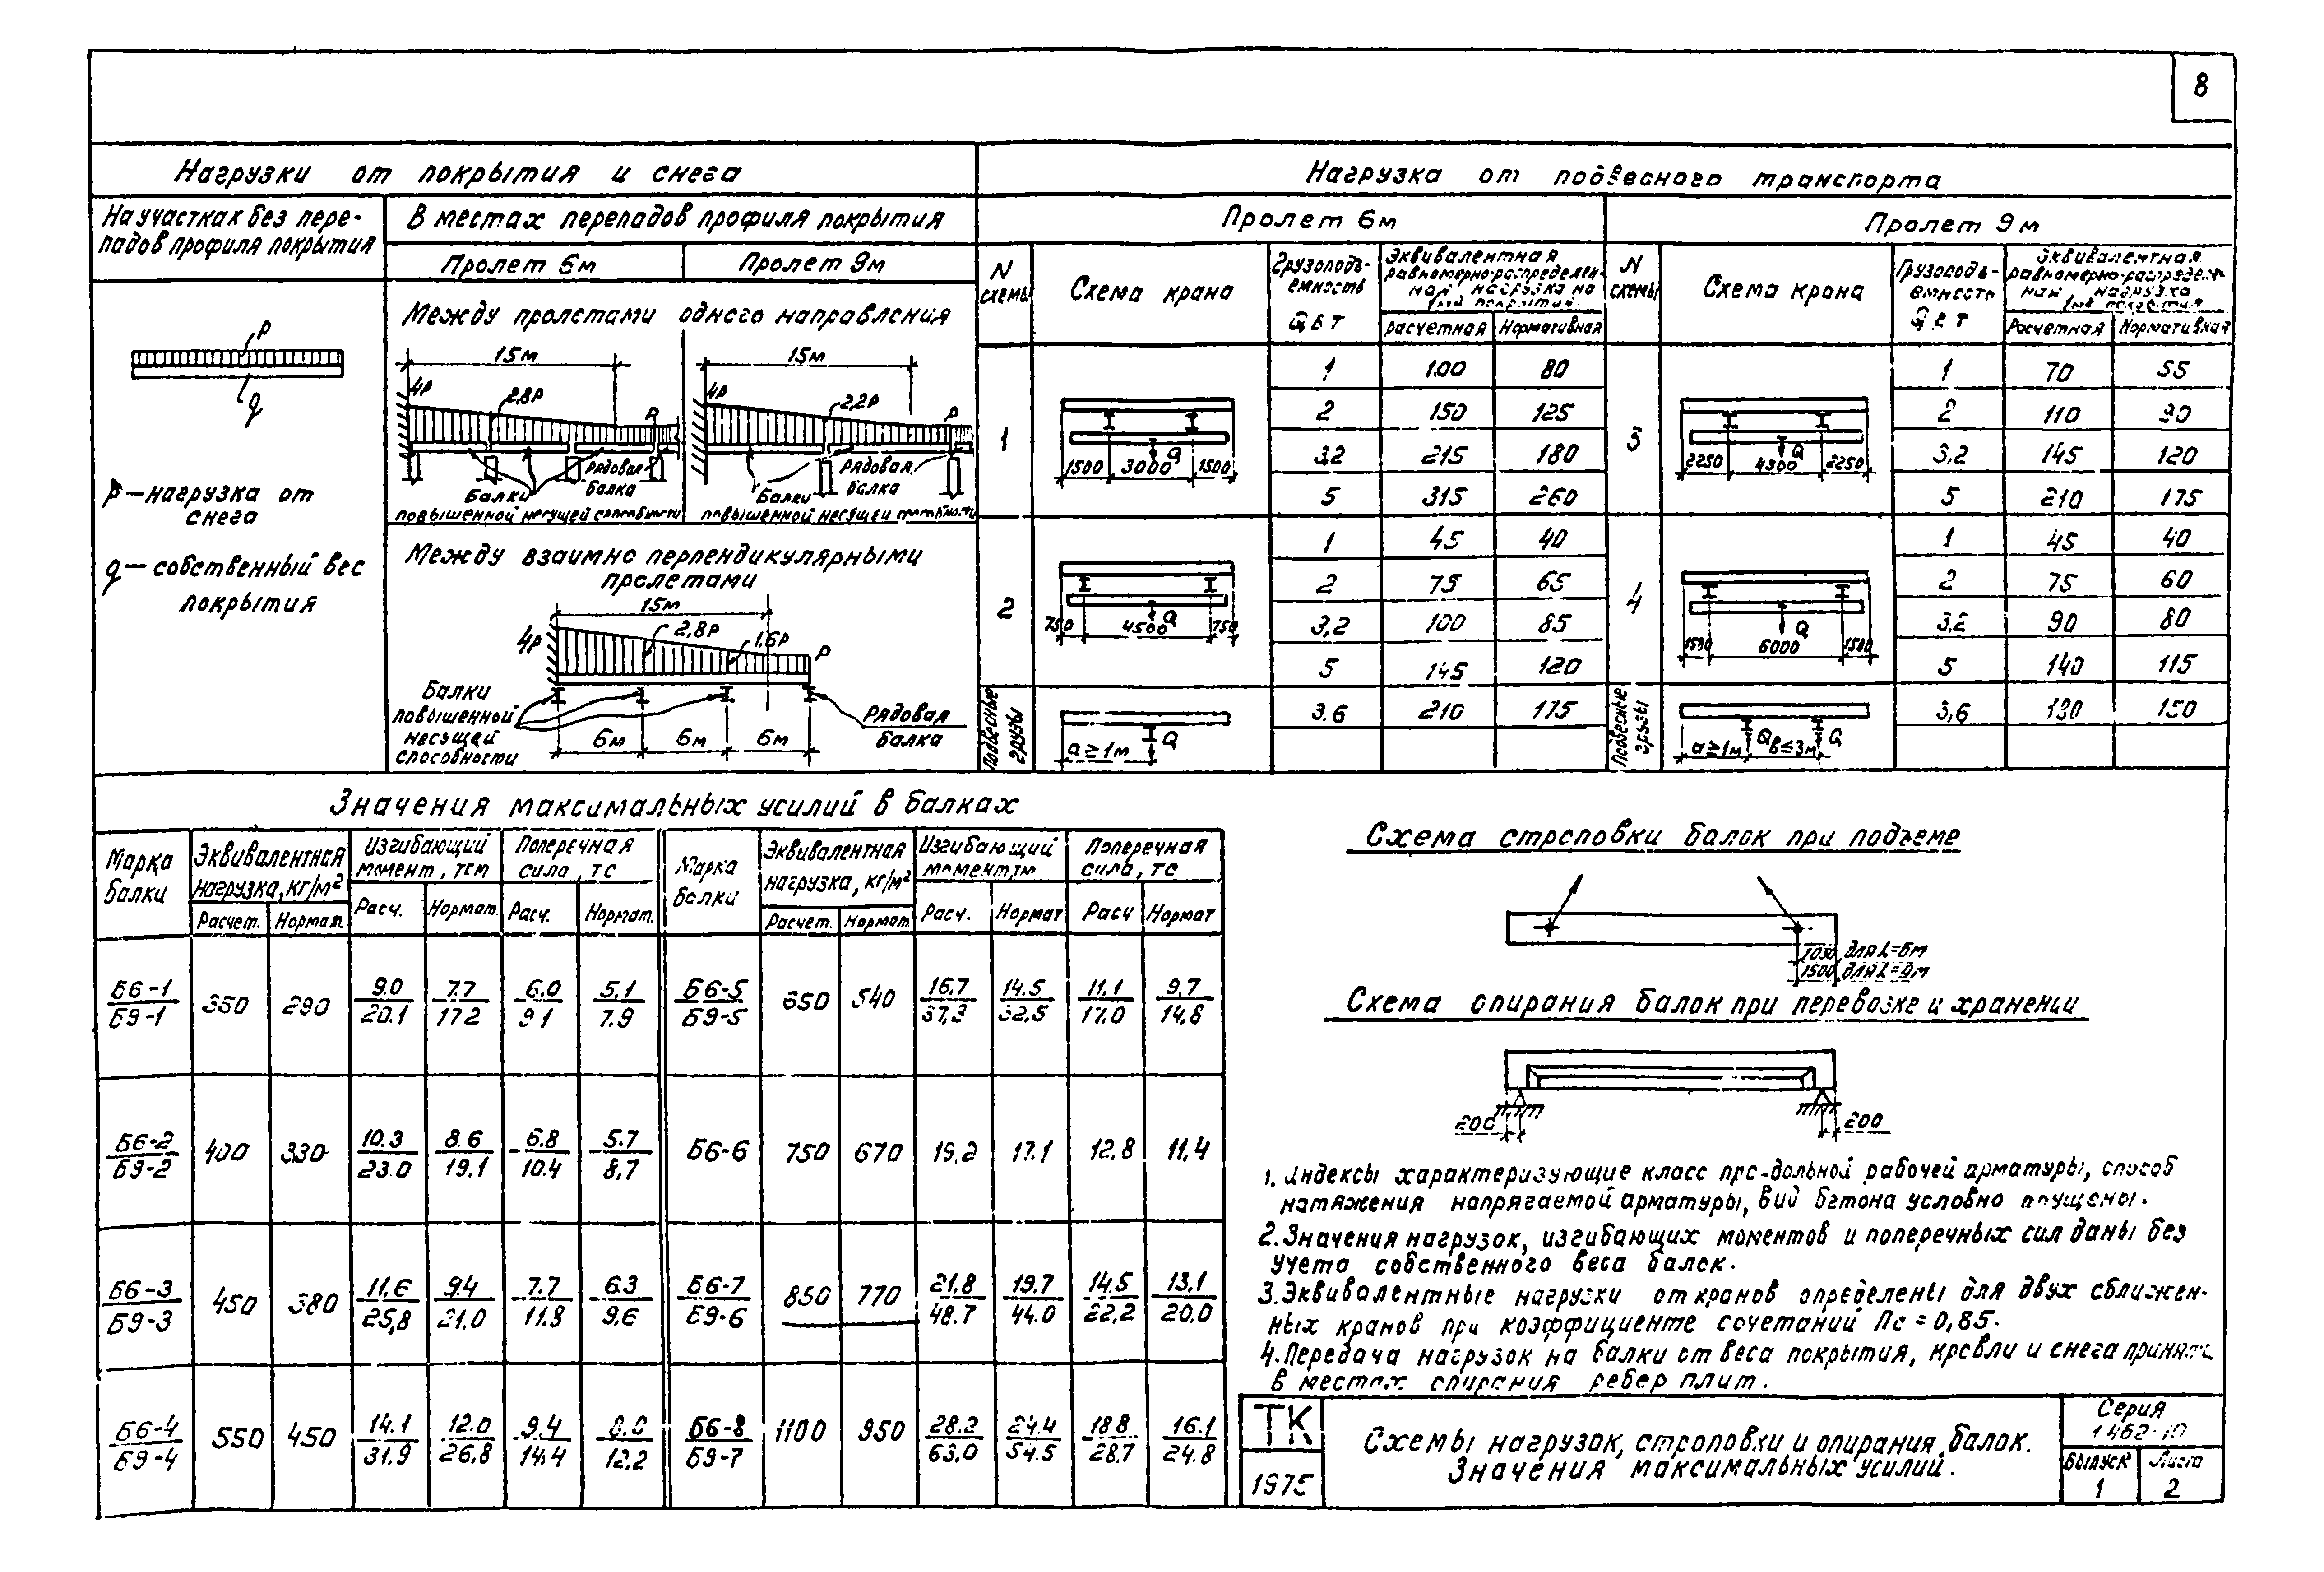 8
Нагрузки от покрытия и снега
На участках без пере-
падов профиля покрытия
P
q
P – нагрузка от
снега
q – собственный вес
покрытия
В местах перепадов профиля покрытия
Пролет 6м
Пролет 9м
Между пролетами одного направления
15м
15м
4P
2,8P
P
4P
2,2P
P
Рядовая
балка
Балки
повышенной несущей способности
Рядовая
балка
Балки
повышенной несущей способности
Между взаимно перпендикулярными
пролетами
15м
4P
2,8P
1,6P
P
Балки
повышенной
несущей
способности
6м
6м
6м
Рядовая
балка
Нагрузка от подвесного транспорта
Пролет 6м
N
схемы
Схема крана
Грузоподъ-
емность
Q в т
Эквивалентная
равномерно-распределен-
ная нагрузка на
1м² покрытия
Расчетная
Нормативная
1
1500 3000 1500
Q
1 100 80
2 150 125
3,2 215 180
5 315 260
2
750 4500 750
Q
1 45 40
2 75 65
3,2 100 85
5 145 120
Подвесные
грузы
a ≥ 1м
Q
3.6 210 175
Пролет 9м
N
схемы
Схема крана
Грузоподъ-
емность
Q в т
Эквивалентная
равномерно-распределен-
ная нагрузка
1м² покрытия
Расчетная
Нормативная
3
2250 4500 2250
Q
1 70 55
2 110 90
3,2 145 120
5 210 175
4
1500 6000 1500
Q
1 45 40
2 75 60
3,2 90 80
5 140 115
Подвесные
грузы
a ≥ 1м Q в ≤ 3м Q
3,6 180 150
Значения максимальных усилий в балках
Марка
балки
Эквивалентная
нагрузка, кг/м²
Расчет. Нормат.
Изгибающий
момент, тсм
Расч. Нормат.
Поперечная
сила, тс
Расч. Нормат.
Марка
балки
Эквивалентная
нагрузка, кг/м²
Расчет. Нормат.
Изгибающий
момент, тм
Расч. Нормат
Поперечная
сила, тс
Расч Нормат
Б6-1 9.0 7.7 6.0 5.1 Б6-5 16.7 14.5 11.1 9.7
350 290 650 540
Б9-1 20.1 17.2 9.1 7.9 Б9-5 37,3 32,5 17.0 14.8
Б6-2 10.3 8.6 6.8 5.7
400 330 Б6-6 750 670 19,2 17.1 12.8 11,4
Б9-2 23.0 19.1 10.4 8,7
Б6-3 11,6 9.4 7.7 6.3 Б6-7 21.8 19.7 14.5 13.1
450 380 850 770
Б9-3 25,8 21.0 11.8 9,6 Б9-6 48.7 44.0 22,2 20.0
Б6-4 14.1 12.0 9,4 8.0 Б6-8 28.2 24.4 18.8 16.1
550 450 1100 950
Б9-4 31.9 26.8 14.4 12,2 Б9-7 63,0 54.5 28.7 24.8
Схема строповки балок при подъеме
для L=6м
1500 для L=9м
Схема опирания балок при перевозке и хранении
200
200
1. Индексы характеризующие класс продольной рабочей арматуры, способ
натяжения напрягаемой арматуры, вид бетона условно опущены.
2. Значения нагрузок, изгибающих моментов и поперечных сил даны без
учета собственного веса балок.
3. Эквивалентные нагрузки от кранов определены для двух сближен-
ных кранов при коэффициенте сочетаний Пс = 0,85.
4. Передача нагрузок на балки от веса покрытия, кровли и снега принята
в местах опирания ребер плит.
ТК
1975
Схемы нагрузок, строповки и опирания балок.
Значения максимальных усилий.
Серия
1 462-10
Выпуск
1
Листа
2